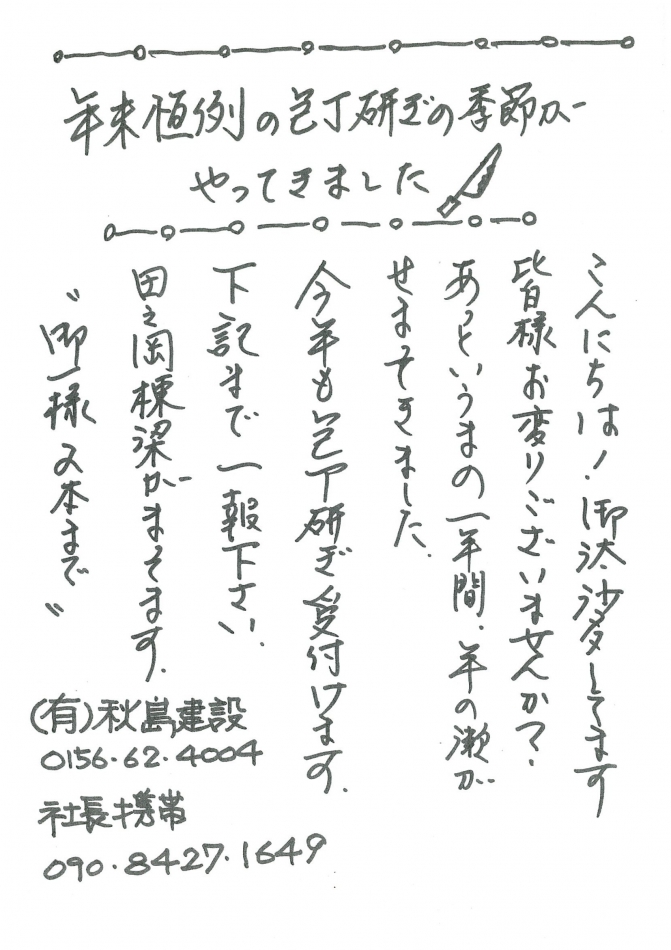 年末恒例の包丁研ぎの季節が
やってきました
こんにちは！御汰沙タしてます
皆様お変りございませんか？
あっというまの一年間、年の瀬が
せまってきました。
今年も包丁研ぎ受付けます。
下記まで一報下さい。
田之岡棟梁がまってます。
〝御一様2本まで〟
(有)秋島建設
0156・62・4004
社長携帯
090・8427・1649